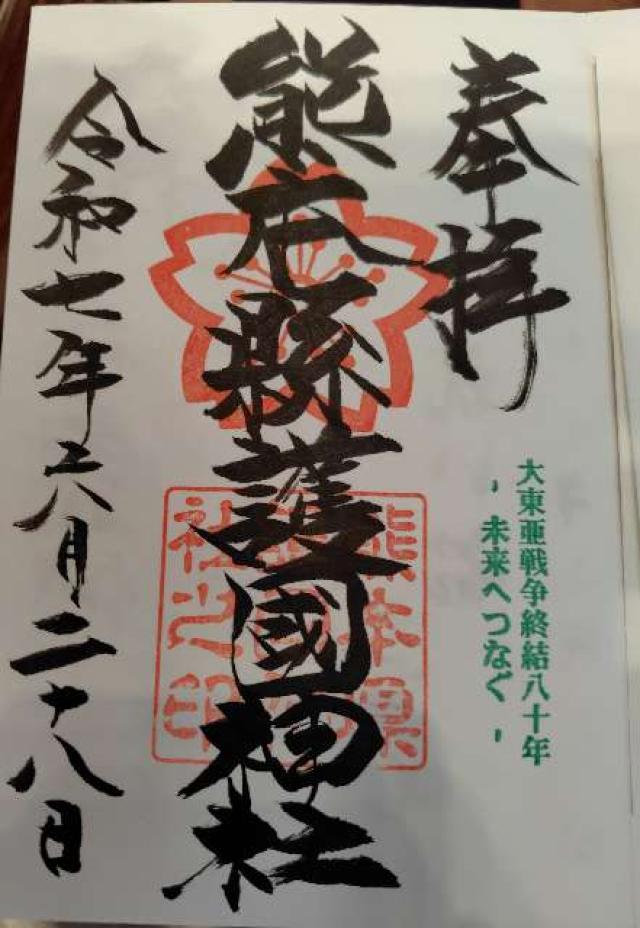 奉拝
大東亜戦争終結八十年
- 未来へつなぐ -
熊本縣護國神社
熊本県
社之印
令和七年六月二十八日